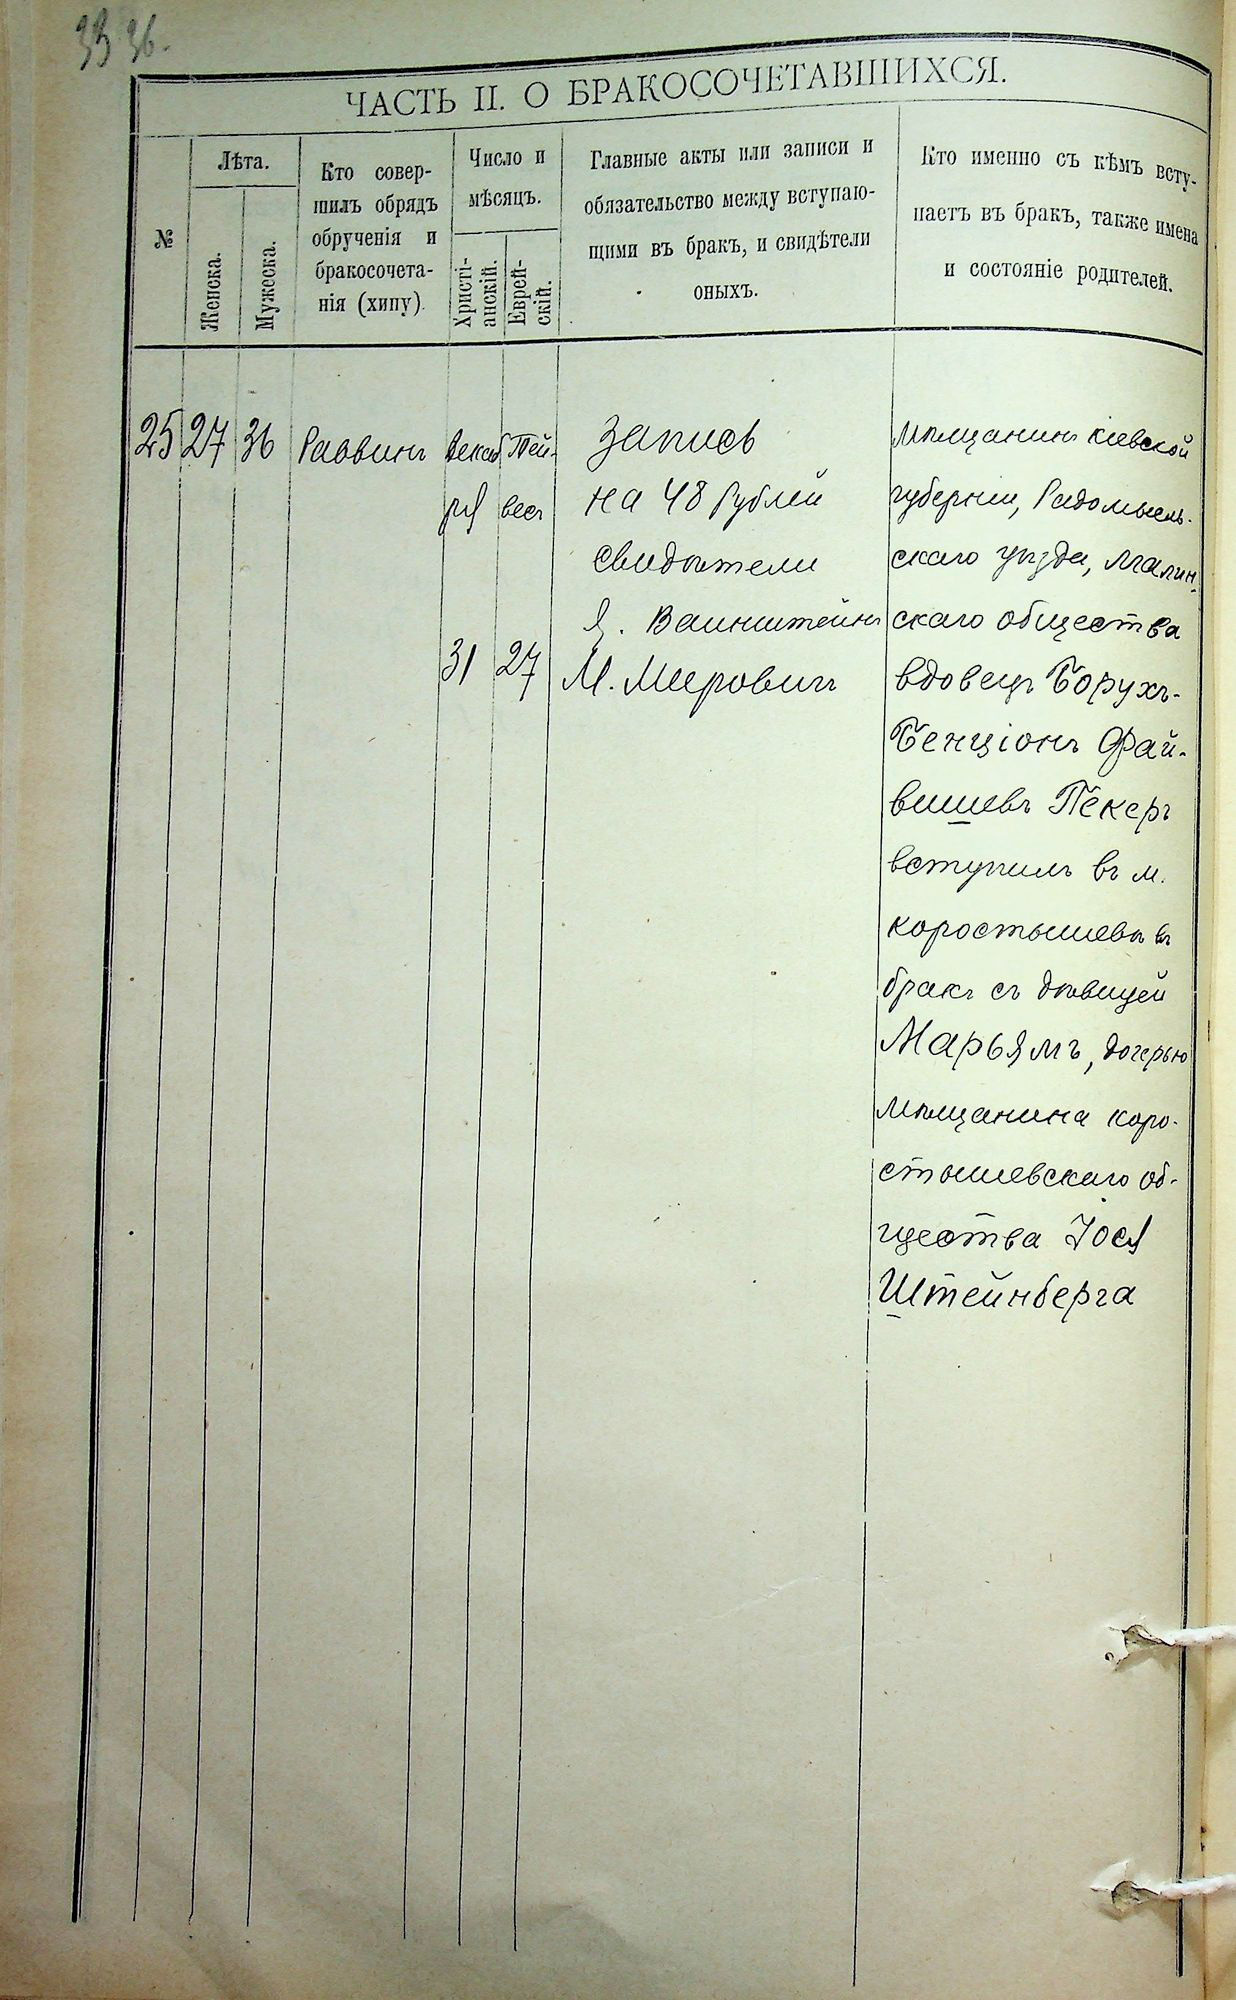 33 36.
ЧАСТЬ II. О БРАКОСОЧЕТАВШИХСЯ.
№
Лѣта.
Женска.
Мужеска.
Кто совер-
шилъ обрядъ
обрученія и
бракосочета-
нія (хипу).
Число и
мѣсяцъ.
Христі-
анскій.
Еврей-
скій.
Главные акты или записи и
обязательство между вступаю-
щими въ бракъ, и свидѣтели
оныхъ.
Кто именно съ кѣмъ всту-
паетъ въ бракъ, также имена
и состояніе родителей.
25
27
36
Раввинъ
Декаб
ря
31
Тей-
весъ
27
Запись
на 48 рублей
свидѣтели
Я. Ваинштейнъ
М. Меровичъ
мѣщанинъ кіевской
губерніи, Радомысль-
скаго уѣзда, Малин-
скаго общества
вдовецъ Борухъ-
Бенціонъ Фай-
вишевъ Пекеръ
вступилъ въ м.
коростышевѣ въ
бракъ съ дѣвицей
Марьямъ, дочерью
мѣщанина коро-
стышевскаго об-
щества Іося
Штейнберга